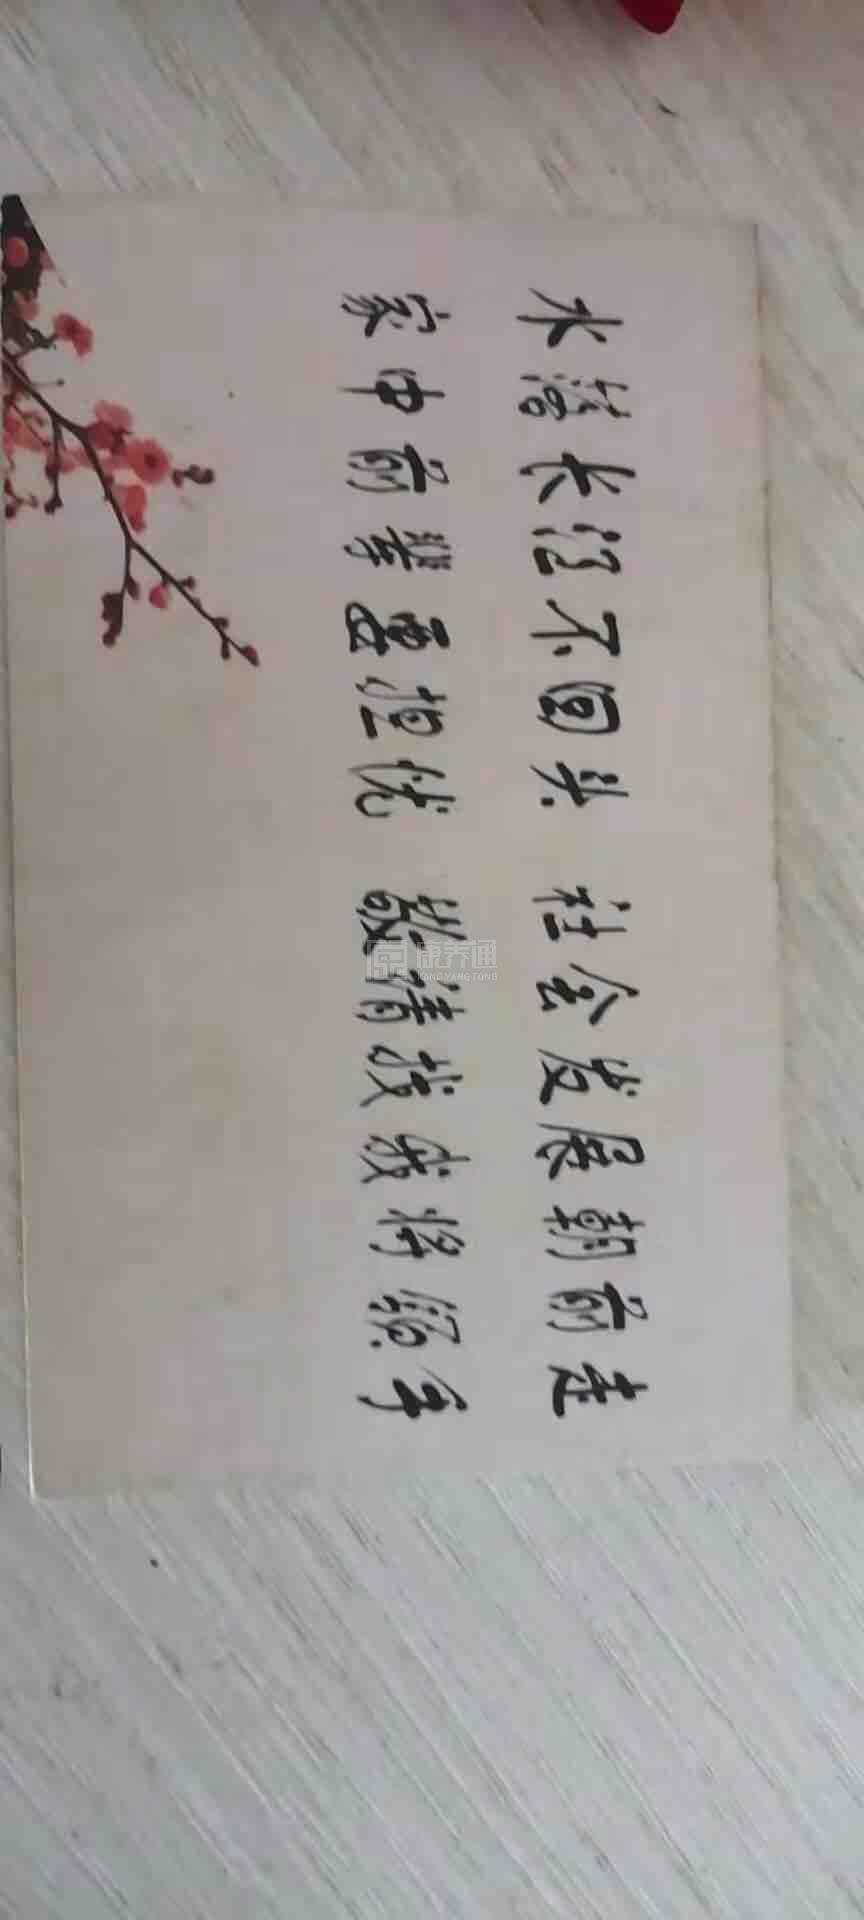 水落长江不回头 社会发展朝前走
家中前辈重担忧 敬请找我将领手
康养通
KANGYANGTONG